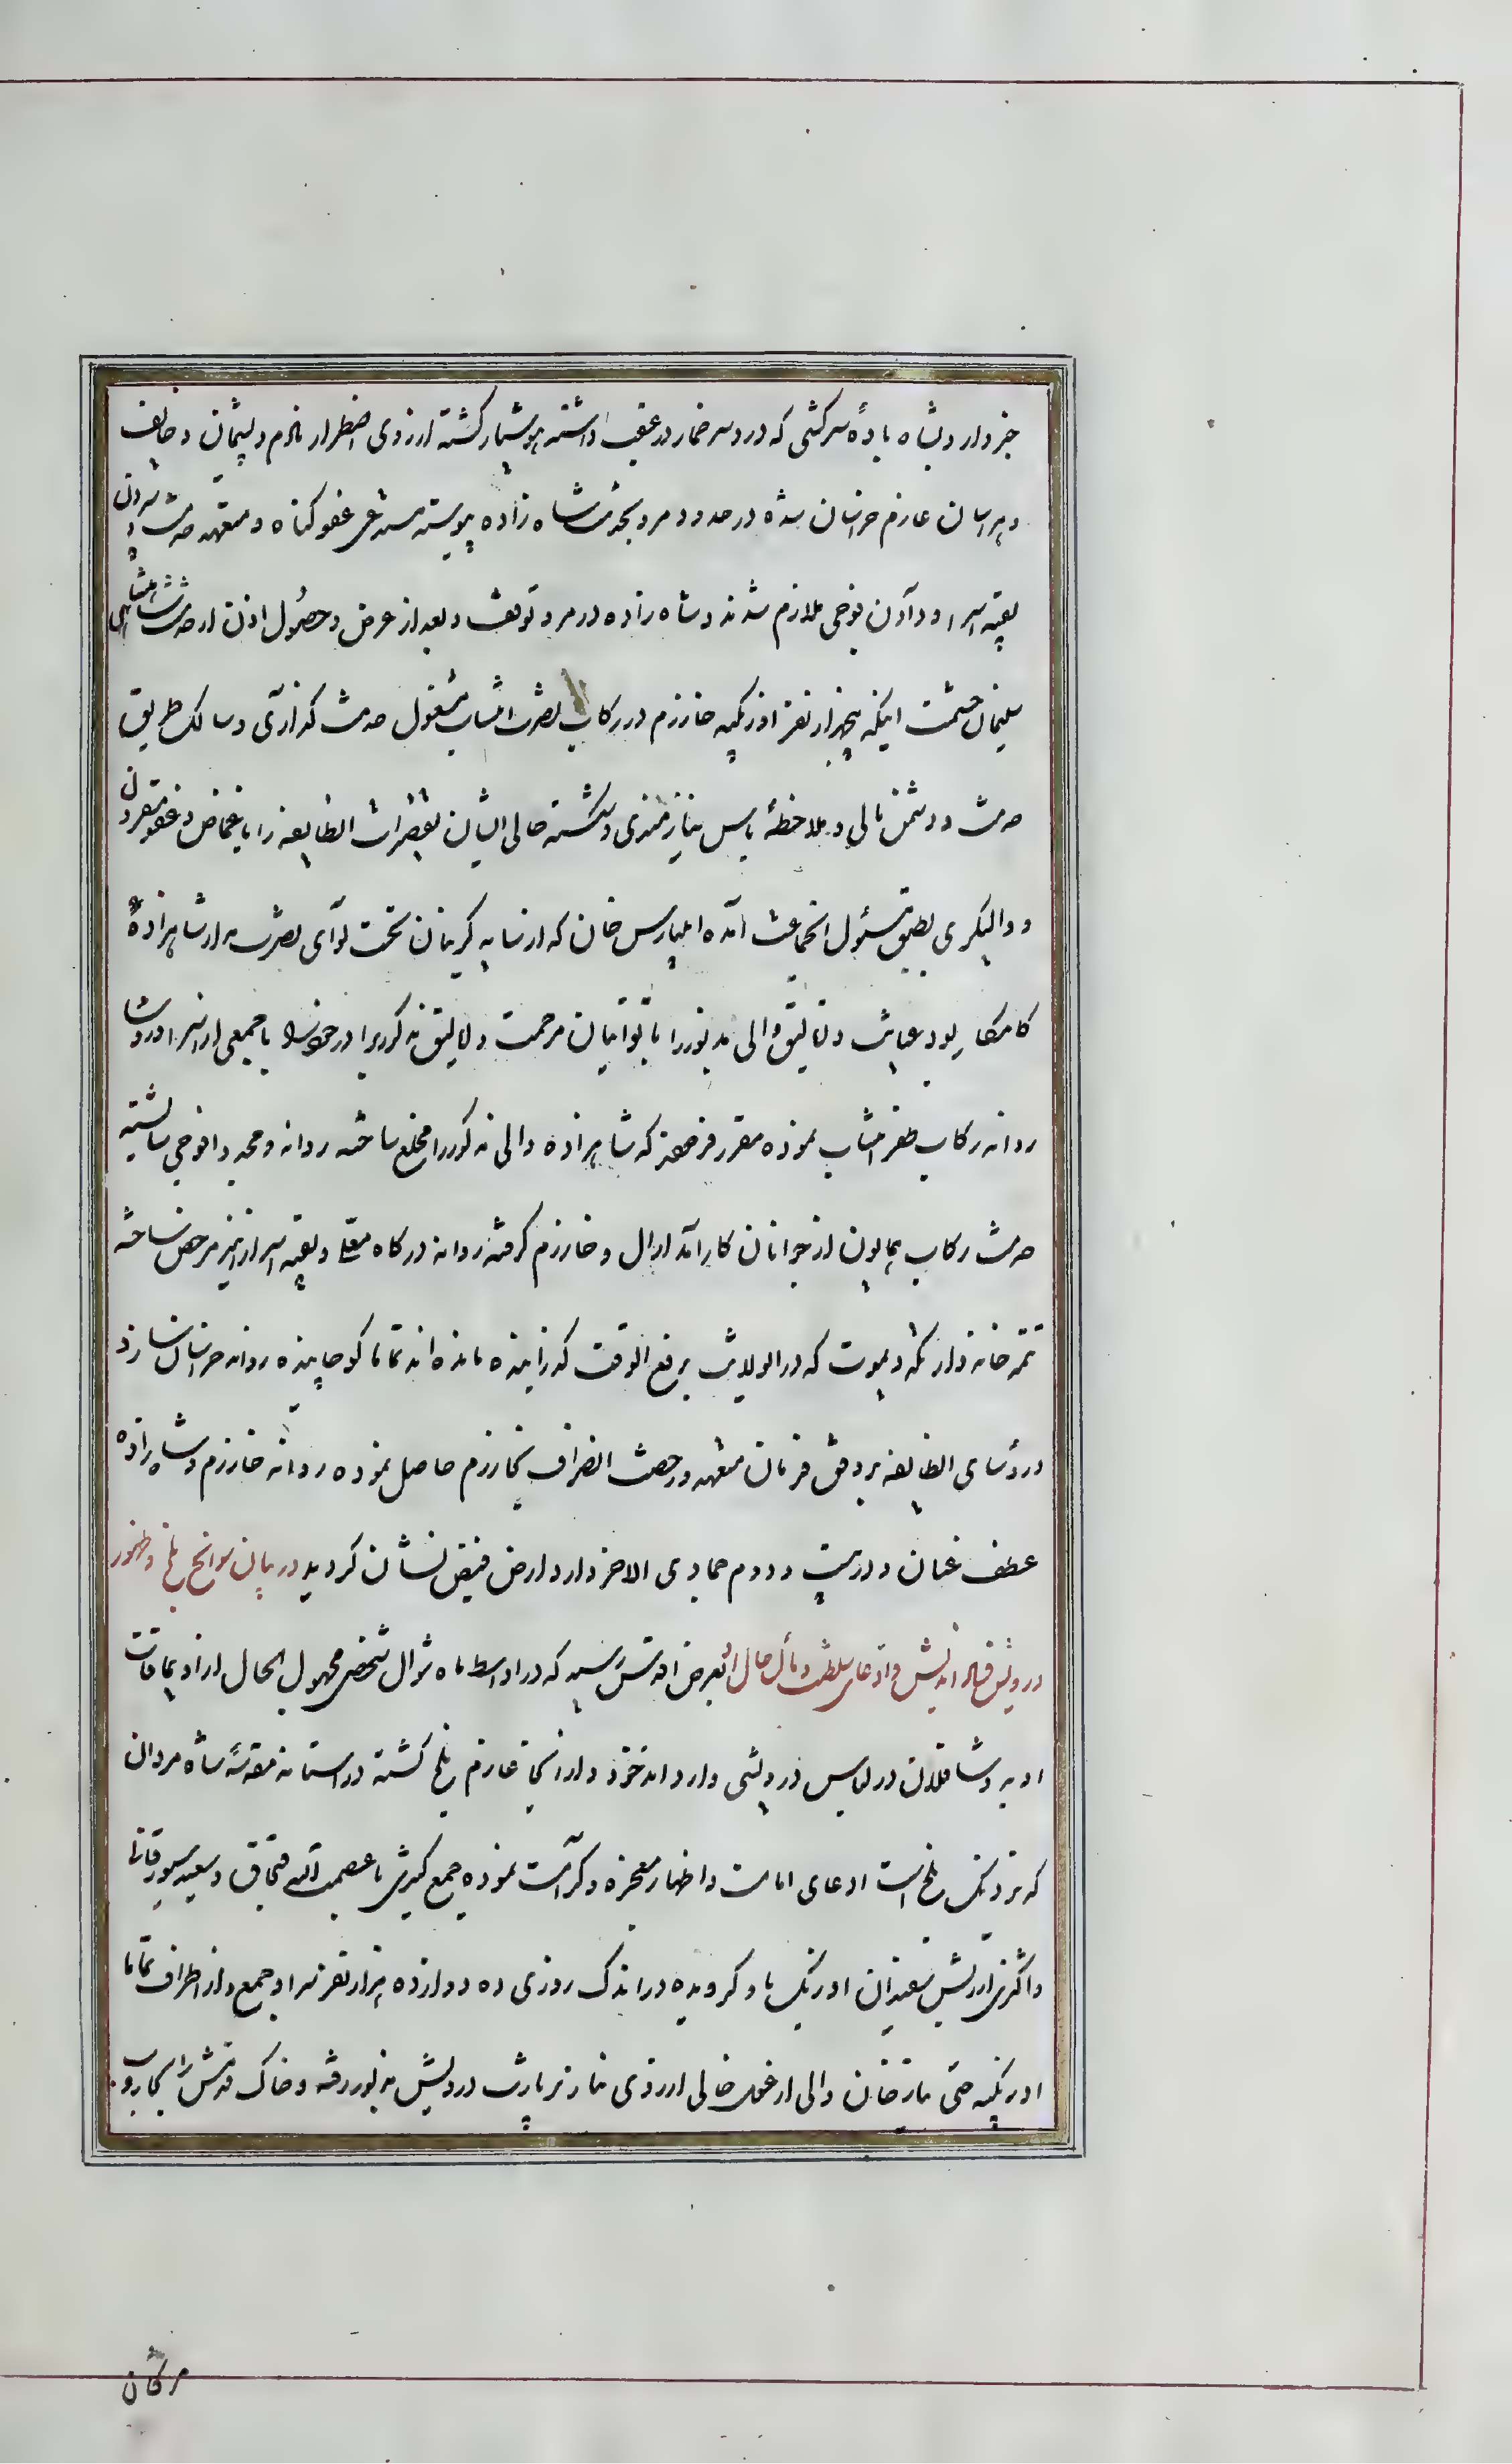 خبردار و نشاه بادهٔ سرکشی که دردسر خمار در عقب داشته هوشیار گشته از روی اضطرار نادم و پشیمان و خایف
و هراسان عازم خراسان شده در حدود مرو بخدمت شاه زاده پیوسته مستدعی عفو گناه و متعهد خدمت و سپردن
بقیه اسرا و دادن فوجی ملازم شدند و شاه زاده در مرو توقف و بعد از عرض و حصول اذن از خدمت شاهنشاهی
سلیمان حشمت اینکه پنجهزار نفر اوزبکیه خوارزم در رکاب نصرت انتساب مشغول خدمت گذاری و سالک طریق
خدمت و دشمن مالی و بملاحظهٔ پاس نیازمندی و شکسته حالی ایشان تقصیرات انطایفه را باغماض و عفو مقرون
و والیگری بطبق مسئول انجماعت آمده ایلبارس خان که از سایه کزینان تحت لوآی نصرت مدار شاهزادهٔ
کامکار بود عنایت و اتالیق والی مزبور را بارتوق ایناق مرحمت و اتالیق مذکور را در خوارزم با جمعی از اسرا و روسا
روانه رکاب ظفر انتساب نموده مقرر فرمودند که شاهزاده والی مذکور را مخلع ساخته روانه و مجدد افوجی شایسته
خدمت رکاب همایون از جوانان کارآمد ارال و خوارزم گرفته روانه درگاه معلی و بقیه اسرا را نیز مرخص ساخته
تتمه خانه وار تکه و یموت که در الولایت برفع الوقت گذرانیده مانده اند تماما کوچانیده روانه خراسان سازد
و رؤسای انطایفه بر وفق فرمان متعهد و رخصت انصراف بخوارزم حاصل نموده روانه خوارزم و شاه زاده
عطف عنان و در بیست و دوم جمادی الاخر وارد ارض فیض نشان گردید در بیان سوانح بلخ و ظهور
درویش فساد اندیش و ادعای سلطنت و مآل حال او بعرض اقدس رسید که در اواسط ماه شوال شخصی مجهول الحال از اویماقات
اوبه و شاقلان در لباس درویشی وارد اندخود و از انجا عازم بلخ گشته در استانه مقدسهٔ شاه مردان
که نزدیک بلخ است ادعای امامت و اظهار معجزه و کرآمت نموده جمع کثیری با عصمت الله قپچاق و سعید سیورقاتا
و اکثری از ریش سفیدان اوزبک باو گرویده در اندک روزی ده دوازده هزار نفر نزد او جمع و از اطراف تماما
اوزبکیه حتی نیازخان والی از غول خالی از روی نیاز بزیارت درویش مزبور رفته و خاک قدمش را بجاروب
مژکان